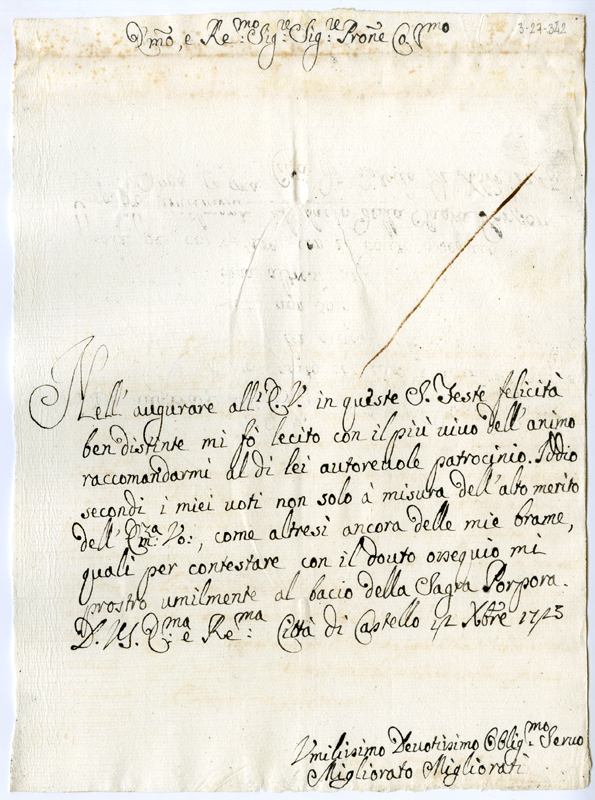 3-27-342
Emo, e Re:mo Sig:re Sig:re Prone Co:mo
Nell' augurare all' E. V. in queste S. Feste felicità
ben distinte mi fò lecito con il più vivo dell' animo
raccomandarmi al di lei autorevole patrocinio. Iddio
secondi i miei voti non solo à misura dell' alto merito
dell' Em:za Vo:, come altresi ancora delle mie brame,
quali per contestare con il dovuto ossequio mi
prostro umilmente al bacio della Sagra Porpora.
D. V. E:ma e Re:ma Città di Castello Xbre 1713
Umilissimo Devotissimo Oblig:mo Servo
Migliorato Migliorati